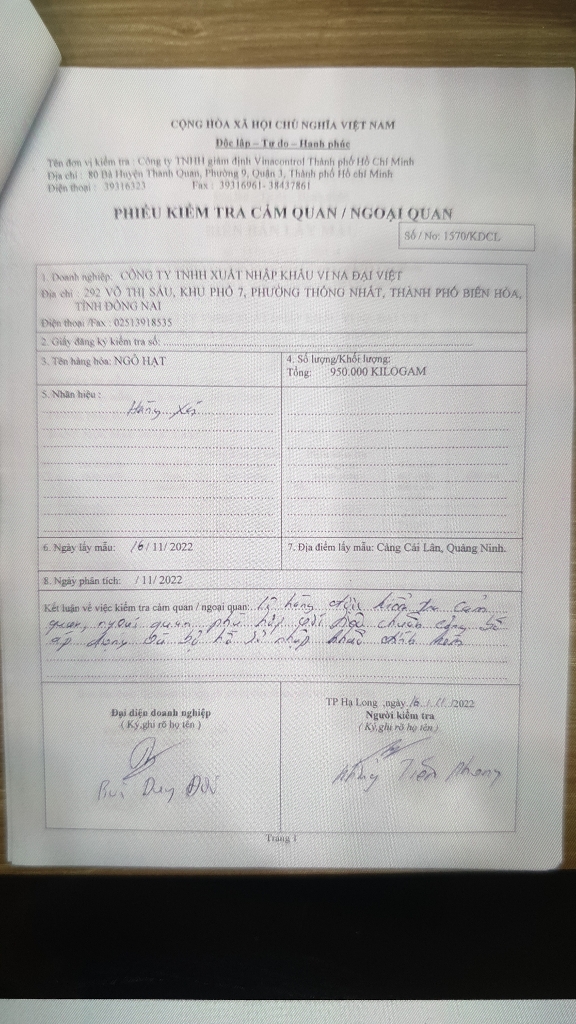 CỘNG HÒA XÃ HỘI CHỦ NGHĨA VIỆT NAM
Độc lập – Tự do – Hạnh phúc
Tên đơn vị kiểm tra : Công ty TNHH giám định Vinacontrol Thành phố Hồ Chí Minh
Địa chỉ : 80 Bà Huyện Thanh Quan, Phường 9, Quận 3, Thành phố Hồ chí Minh
Điện thoại : 39316323 Fax : 39316961- 38437861
PHIẾU KIỂM TRA CẢM QUAN / NGOẠI QUAN
Số / No: 1570/KDCL
1. Doanh nghiệp: CÔNG TY TNHH XUẤT NHẬP KHẨU VI NA ĐẠI VIỆT
Địa chỉ : 292 VÕ THỊ SÁU, KHU PHỐ 7, PHƯỜNG THỐNG NHẤT, THÀNH PHỐ BIÊN HÒA,
TỈNH ĐỒNG NAI
Điện thoại /Fax : 02513918535
2. Giấy đăng ký kiểm tra số:
3. Tên hàng hóa: NGÔ HẠT
4. Số lượng/Khối lượng:
Tổng: 950.000 KILOGAM
5. Nhãn hiệu :
Hàng xá
6. Ngày lấy mẫu: 16/ 11/ 2022
7. Địa điểm lấy mẫu: Cảng Cái Lân, Quảng Ninh.
8. Ngày phân tích: / 11/ 2022
Kết luận về việc kiểm tra cảm quan / ngoại quan: Lô hàng được kiểm tra cảm
quan, ngoại quan phù hợp với tiêu chuẩn công bố
áp dụng và bộ hồ sơ nhập khẩu đính kèm
Đại diện doanh nghiệp
( Ký,ghi rõ họ tên )
Bùi Duy
TP Hạ Long ,ngày 16 / 11 /2022
Người kiểm tra
( Ký,ghi rõ họ tên )
Tiến Phong
Trang 1